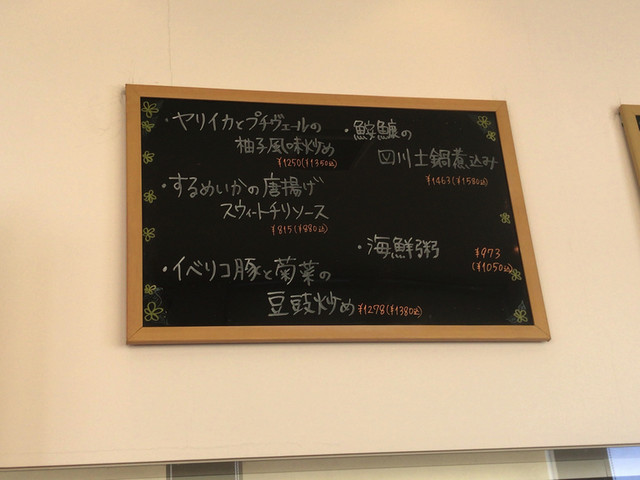 ・ヤリイカとプチヴェールの
柚子風味炒め
¥1250(¥1350込)
・するめいかの唐揚げ
スウィートチリソース
¥815(¥880込)
・イベリコ豚と菊菜の
豆豉炒め ¥1278(¥1380込)
・鮟鱇の
四川土鍋煮込み
¥1463(¥1580込)
・海鮮粥 ¥973
(¥1050込)